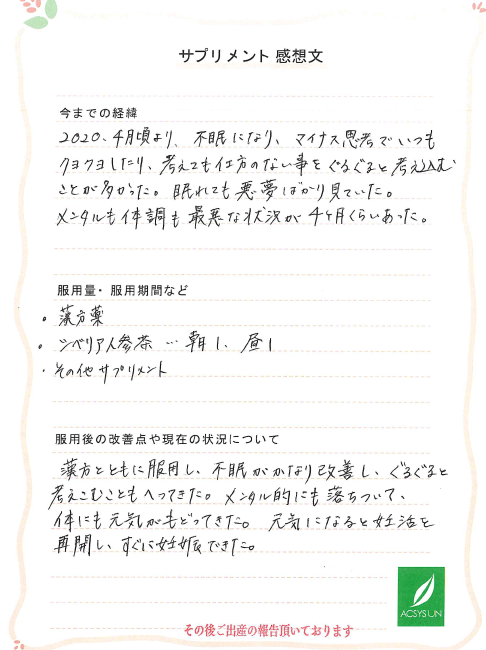 サプリメント 感想文
今までの経緯
2020、4月頃より、不眠になり、マイナス思考でいつも
クヨクヨしたり、考えても仕方のない事をぐるぐると考え込む
ことが多かった。眠れても悪夢ばかり見ていた。
メンタルも体調も最悪な状況が4ヶ月くらいあった。
服用量・服用期間など
・漢方薬
・シベリア人参茶 … 朝1、昼1
・その他サプリメント
服用後の改善点や現在の状況について
漢方とともに服用し、不眠がかなり改善し、ぐるぐると
考えこむこともへってきた。メンタル的にも落ちついて、
体にも元気がもどってきた。元気になると妊活を
再開し、すぐに妊娠できた。
ACSYSUN
その後ご出産の報告頂いております